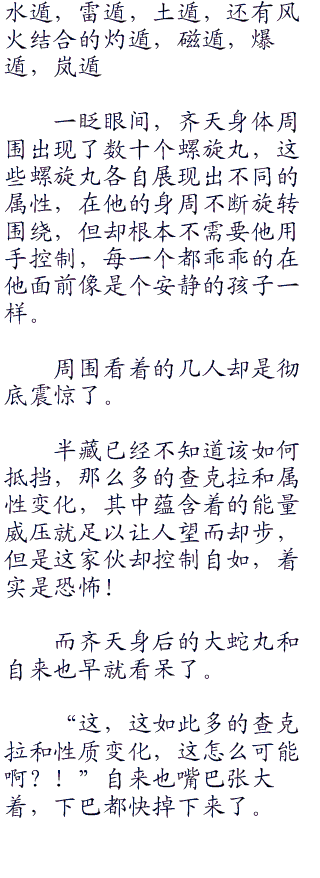 水遁，雷遁，土遁，还有风
火结合的灼遁，磁遁，爆
遁，岚遁
一眨眼间，齐天身体周
围出现了数十个螺旋丸，这
些螺旋丸各自展现出不同的
属性，在他的身周不断旋转
围绕，但却根本不需要他用
手控制，每一个都乖乖的在
他面前像是个安静的孩子一
样。
周围看着的几人却是彻
底震惊了。
半藏已经不知道该如何
抵挡，那么多的查克拉和属
性变化，其中蕴含着的能量
威压就足以让人望而却步，
但是这家伙却控制自如，着
实是恐怖！
而齐天身后的大蛇丸和
自来也早就看呆了。
“这，这如此多的查克
拉和性质变化，这怎么可能
啊？！”自来也嘴巴张大
着，下巴都快掉下来了。